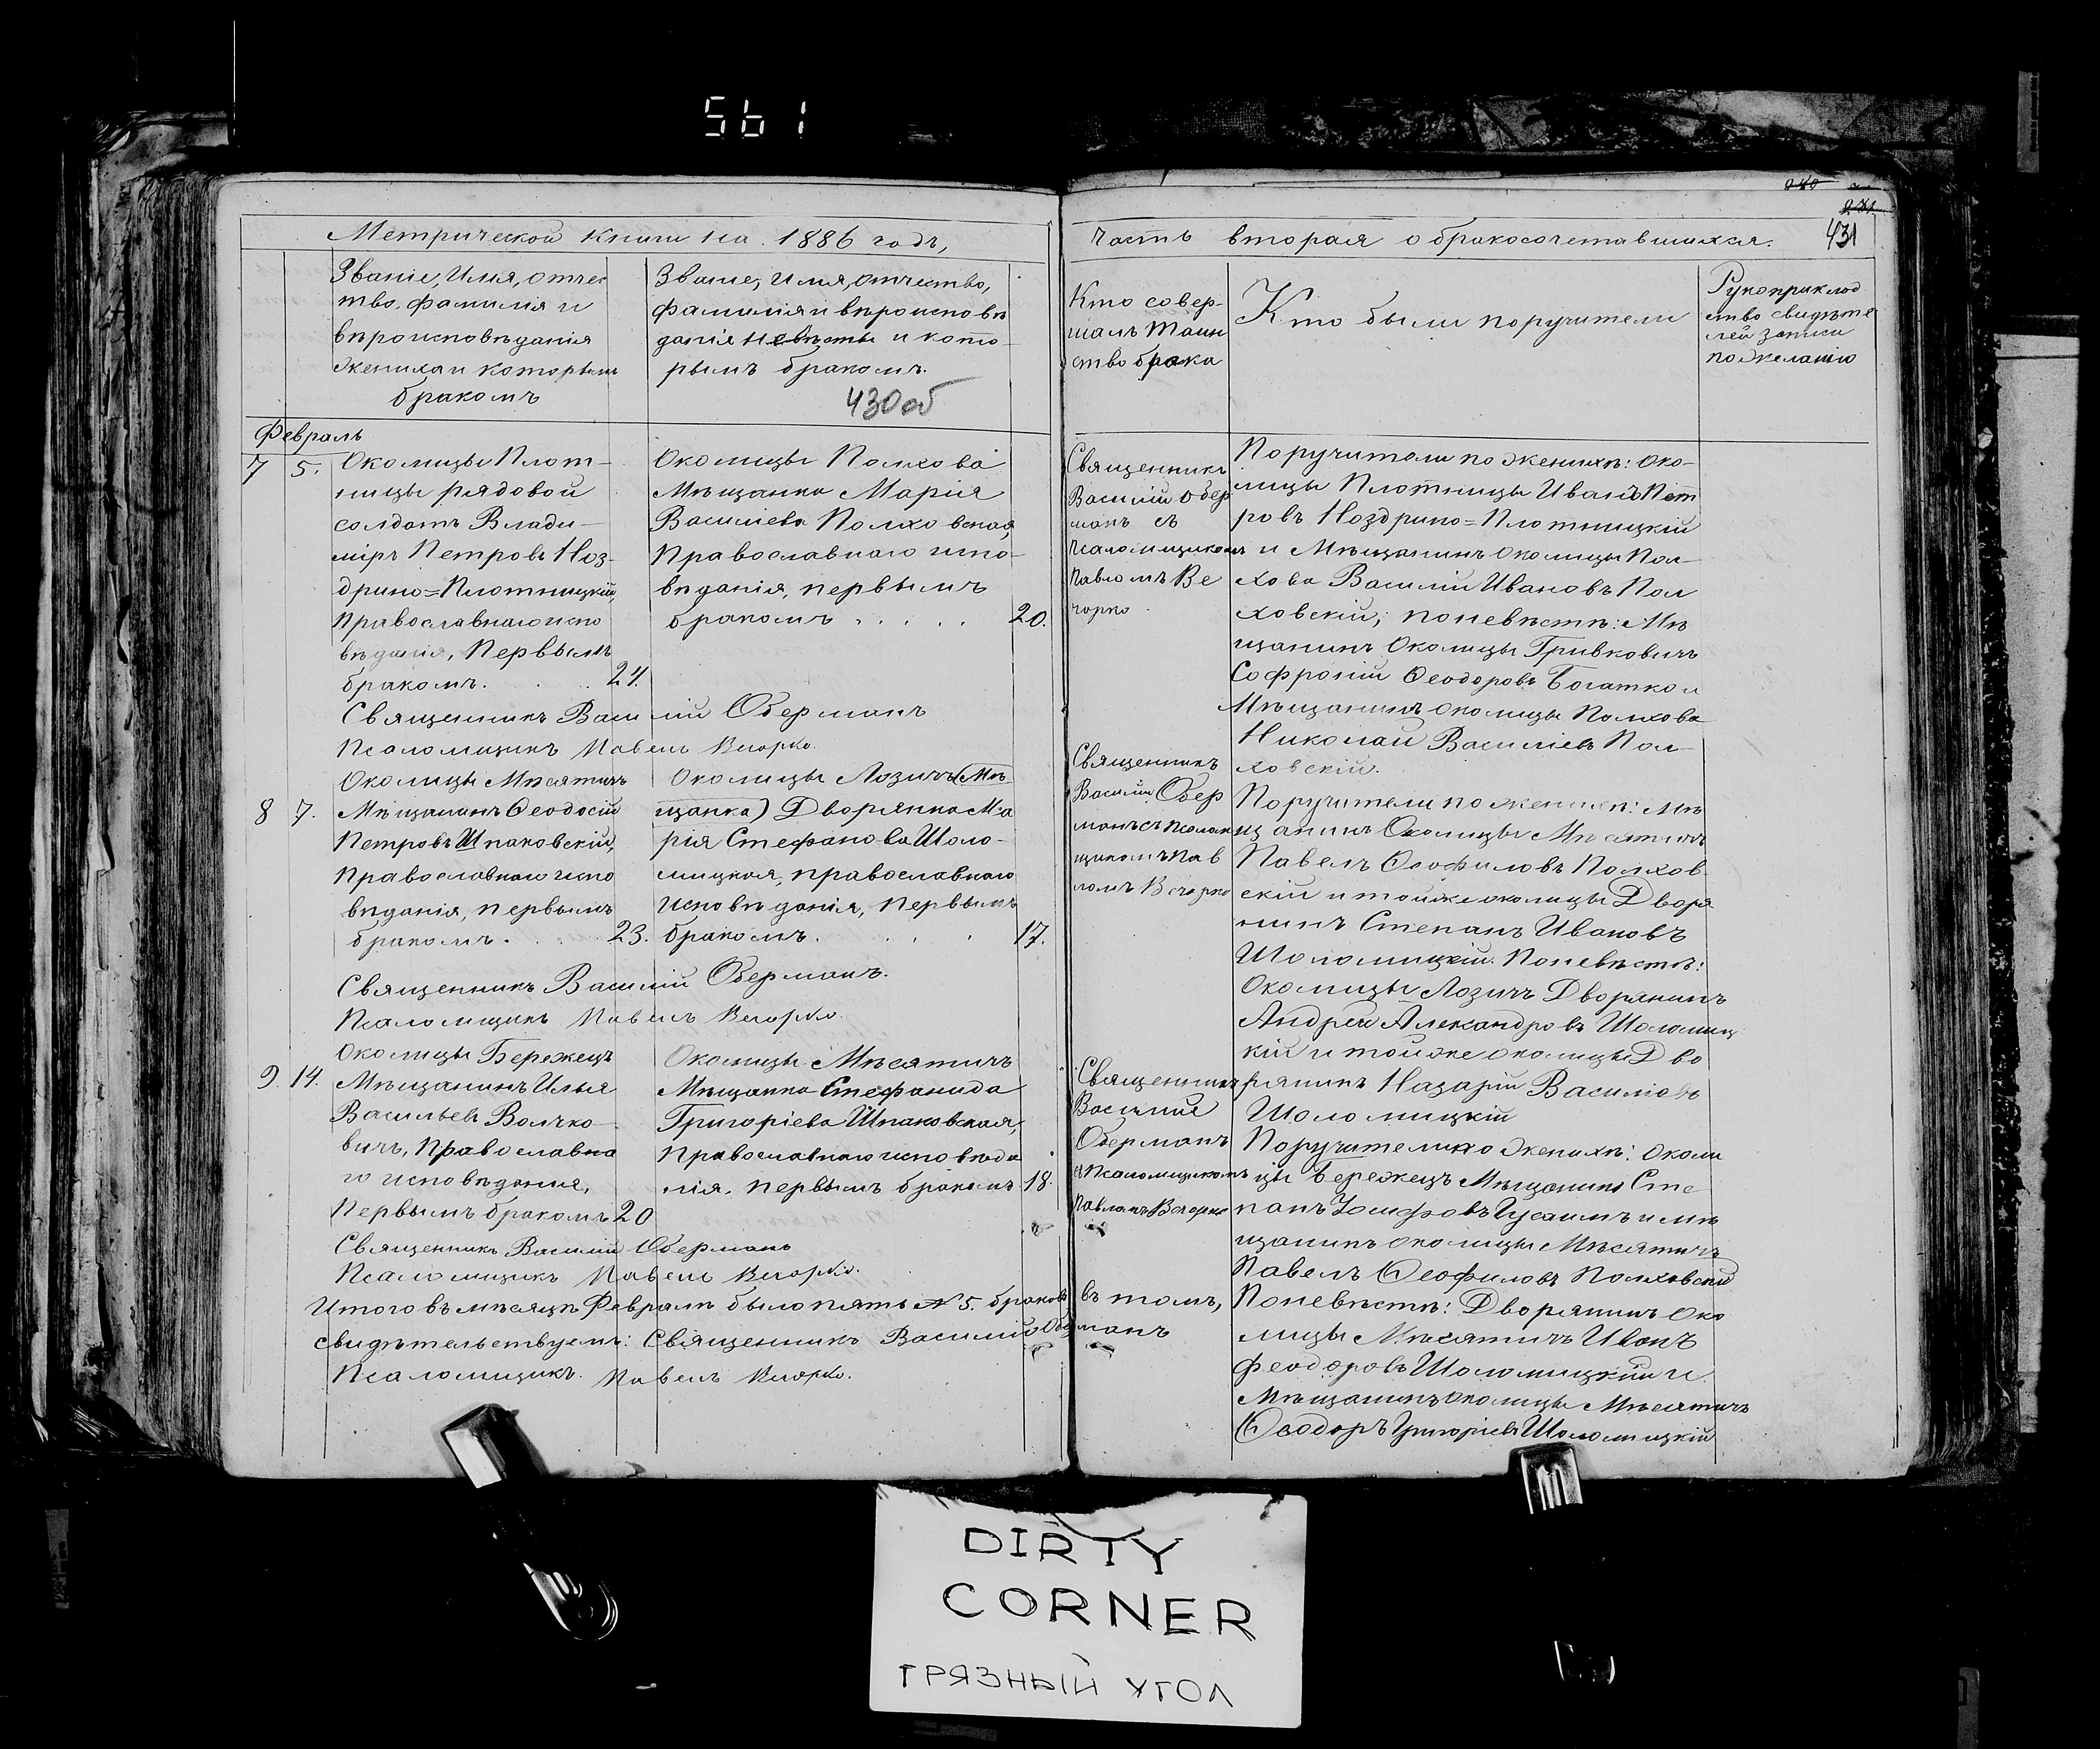 561
Метрической книги на 1886 годъ,
Званіе, Имя, отчес
тво, фамилія и
вѣроисповѣданія
жениха и которымъ
бракомъ
Званіе, имя, отчество,
фамилія и вѣроисповѣ
данія невѣсты и кото-
рымъ бракомъ.
430 об
Февраль
7 5. Околицы Плот-
ницы рядовой
солдатъ Влади-
міръ Петровъ Ноз-
дрино=Плотницкій,
Православнаго испо
вѣданія, Первымъ
бракомъ. 24.
Околицы Полхова
Мѣщанка Марія
Василіева Полховская,
Православнаго испо-
вѣданія, первымъ
бракомъ . . . . . 20.
Священникъ Василій Оберманъ
Псаломщикъ Павелъ Вечорко.
Околицы Мѣсятичъ
8 7. Мѣщанинъ Ѳеодосій
Петровъ Шпаковскій,
Православнаго испо
вѣданія, первымъ
бракомъ. 23.
Околицы Лозичъ (Мѣ
щанка) Дворянка Ма
рія Стефанова Шоло-
мицкая, православнаго
исповѣданія, Первымъ
бракомъ. 17.
Священникъ Василій Оберманъ.
Псаломщикъ Павелъ Вечорко.
Околицы Бережецъ
9 14. Мѣщанинъ Илья
Васильевъ Волчко-
вичъ, Православна
го исповѣданія,
Первымъ бракомъ 20
Околицы Мѣсятичъ
Мѣщанка Стефанида
Григоріева Шпаковская,
Православнаго исповѣда
нія, первымъ бракомъ 18.
Священникъ Василій Оберманъ
Псаломщикъ Павелъ Вечорко.
Итого въ мѣсяцѣ Февралѣ было пять № 5. браковъ въ томъ,
свидѣтельствуемъ: Священникъ Василій Оберманъ
Псаломщикъ. Павелъ Вечорко.
Часть вторая о бракосочетавшихся.
280
281
431
Кто совер-
шалъ таин
ство брака
Кто были поручители
Рукоприклад
ство свидѣте
лей записи
по желанію
Священникъ
Василій Обер
манъ съ
Псаломщикомъ
Павломъ Ве
чорко
Поручители по женихѣ: Око-
лицы Плотницы Иванъ Пет
ровъ Ноздрино=Плотницкій
и Мѣщанинъ околицы Пол-
хова Василій Ивановъ Пол
ховскій; по невѣстѣ: Мѣ
щанинъ Околицы Гривковичъ
Софроній Ѳеодоровъ Богатко и
Мѣщанинъ околицы Полхова
Николай Василіевъ Пол-
ховскій.
Священникъ
Василій Обер
манъ съ Псалом
щикомъ Пав
ломъ Вечорко
Поручители по женихѣ: Мѣ
щанинъ Околицы Мѣсятичъ
Павелъ Ѳеофиловъ Полхов-
скій и той же околицы Дворя
нинъ Степанъ Ивановъ
Шоломицкій. По невѣстѣ:
Околицы Лозичъ Дворянинъ
Андрей Александровъ Шоломиц
кій и той же околицы Дво
рянинъ Назарій Василіевъ
Шоломицкій
Священникъ
Василій
Оберманъ
съ Псаломщикомъ
Павломъ Вечорко
Поручители по женихѣ: Околи
цы Бережецъ Мѣщанинъ Сте
панъ Іосифовъ и мѣ
щанинъ околицы Мѣсятичъ
Павелъ Ѳеофиловъ Полховскій
По невѣстѣ: Дворянинъ Око
лицы Мѣсятичъ Иванъ
Феодоровъ Шоломицкій и
Мѣщанинъ околицы Мѣсятичъ
Ѳеодоръ Григоріевъ Шоломицкій
DIRTY
CORNER
ГРЯЗНЫЙ УГОЛ